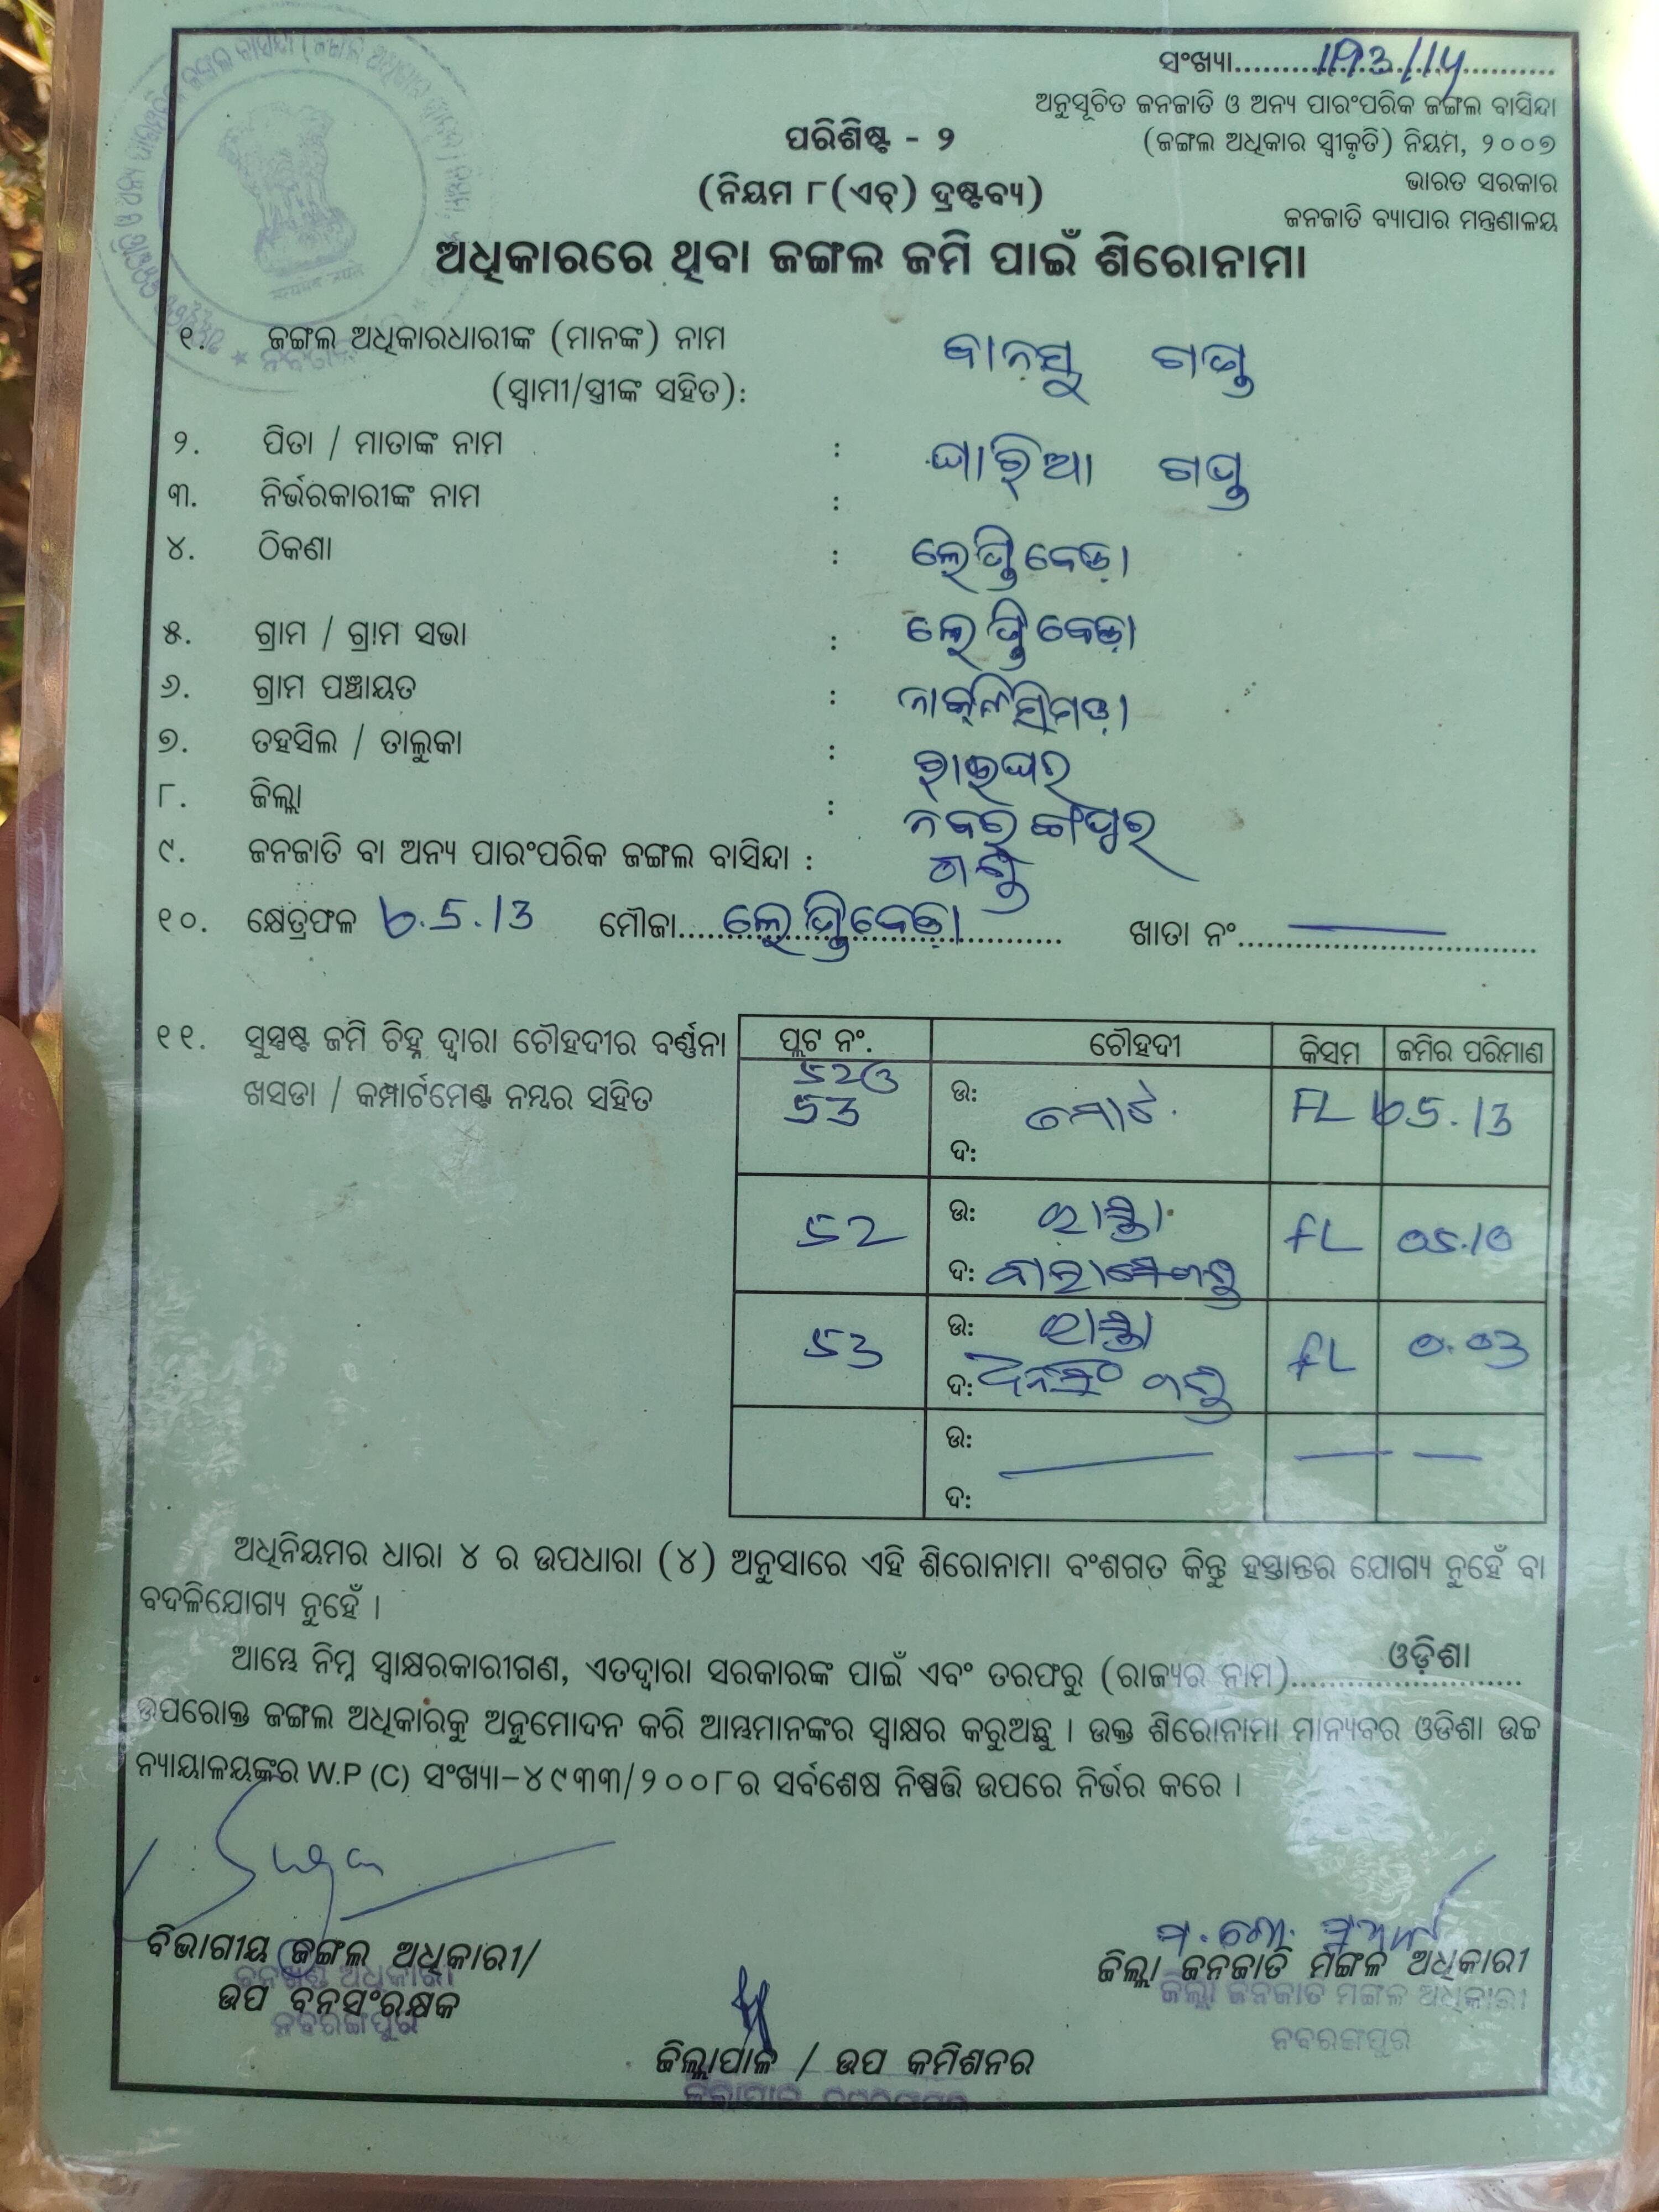 ସଂଖ୍ୟା
ଅନୁସୂଚିତ ଜନଜାତି ଓ ଅନ୍ୟ ପାରଂପରିକ ଜଙ୍ଗଲ ବାସିନ୍ଦା
ପରିଶିଷ୍ଟ - ୨
(ଜଙ୍ଗଲ ଅଧିକାର ସ୍ୱୀକୃତି) ନିୟମ, ୨୦୦୭
(ନିୟମ ୮(ଏଚ୍) ଦ୍ରଷ୍ଟବ୍ୟ)
ଭାରତ ସରକାର
ଜନଜାତି ବ୍ୟାପାର ମନ୍ତ୍ରଣାଳୟ
ଅଧିକାରରେ ଥିବା ଜଙ୍ଗଲ ଜମି ପାଇଁ ଶିରୋନାମା
୧. ଜଙ୍ଗଲ ଅଧିକାରଧାରୀଙ୍କ (ମାନଙ୍କ) ନାମ
(ସ୍ୱାମୀ/ସ୍ତ୍ରୀଙ୍କ ସହିତ):
୨. ପିତା / ମାତାଙ୍କ ନାମ :
୩. ନିର୍ଭରକାରୀଙ୍କ ନାମ :
୪. ଠିକଣା :
୫. ଗ୍ରାମ / ଗ୍ରାମ ସଭା :
୬. ଗ୍ରାମ ପଞ୍ଚାୟତ :
୭. ତହସିଲ / ତାଲୁକା : ରାଇଘର
୮. ଜିଲ୍ଲା : ନବରଙ୍ଗପୁର
୯. ଜନଜାତି ବା ଅନ୍ୟ ପାରଂପରିକ ଜଙ୍ଗଲ ବାସିନ୍ଦା : ଗଣ୍ଡ
୧୦. କ୍ଷେତ୍ରଫଳ ୭.5.13 ମୌଜା ଖାତା ନଂ
୧୧. ସୁସ୍ପଷ୍ଟ ଜମି ଚିହ୍ନ ଦ୍ୱାରା ଚୌହଦୀର ବର୍ଣ୍ଣନା
ଖସଡା / କମ୍ପାର୍ଟମେଣ୍ଟ ନମ୍ବର ସହିତ
ପ୍ଲଟ ନଂ. ଚୌହଦୀ କିସମ ଜମିର ପରିମାଣ
52ଓ
53 ଉ: ମୋଟ FL 5.13
ଦ:
52 ଉ: ରାସ୍ତା FL 05.10
ଦ:
53 ଉ: ରାସ୍ତା FL 0.03
ଦ:
ଉ:
ଦ:
ଅଧିନିୟମର ଧାରା ୪ ର ଉପଧାରା (୪) ଅନୁସାରେ ଏହି ଶିରୋନାମା ବଂଶଗତ କିନ୍ତୁ ହସ୍ତାନ୍ତର ଯୋଗ୍ୟ ନୁହେଁ ବା
ବଦଳିଯୋଗ୍ୟ ନୁହେଁ ।
ଆମ୍ଭେ ନିମ୍ନ ସ୍ୱାକ୍ଷରକାରୀଗଣ, ଏତଦ୍ୱାରା ସରକାରଙ୍କ ପାଇଁ ଏବଂ ତରଫରୁ (ରାଜ୍ୟର ନାମ) ଓଡ଼ିଶା
ଉପରୋକ୍ତ ଜଙ୍ଗଲ ଅଧିକାରକୁ ଅନୁମୋଦନ କରି ଆମ୍ଭମାନଙ୍କର ସ୍ୱାକ୍ଷର କରୁଅଛୁ । ଉକ୍ତ ଶିରୋନାମା ମାନ୍ୟବର ଓଡିଶା ଉଚ୍ଚ
ନ୍ୟାୟାଳୟଙ୍କର W.P (C) ସଂଖ୍ୟା-୪୯୩୩/୨୦୦୮ର ସର୍ବଶେଷ ନିଷ୍ପତ୍ତି ଉପରେ ନିର୍ଭର କରେ ।
ବିଭାଗୀୟ ଜଙ୍ଗଲ ଅଧିକାରୀ/
ବନଖଣ୍ଡ ଅଧିକାରୀ
ଉପ ବନସଂରକ୍ଷକ
ନବରଙ୍ଗପୁର
ଜିଲ୍ଲା ଜନଜାତି ମଙ୍ଗଳ ଅଧିକାରୀ
ଜିଲ୍ଲା ଜନଜାତି ମଙ୍ଗଳ ଅଧିକାରୀ
ନବରଙ୍ଗପୁର
ଜିଲ୍ଲାପାଳ / ଉପ କମିଶନର
ଜିଲ୍ଲାପାଳ, ନବରଙ୍ଗପୁର